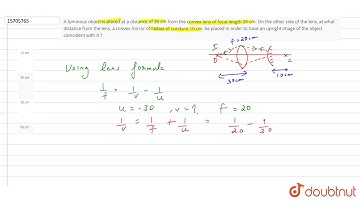 15705765
A luminous object is placed at a distance of 30 cm from the convex lens of focal length 20 cm. On the other side of the lens, at what
distance from the lens, a convex mirror of radius of curvature 10 cm be placed in order to have an upright image of the object
coincident with it ?
f=20cm
I
O
C
30cm
10cm
12 cm
30 cm
50 cm
60 cm
Using lens formula
1/f = 1/v - 1/u
u = -30 , v = ? f = 20
1/v = 1/f + 1/u = 1/20 - 1/30
doubtnut